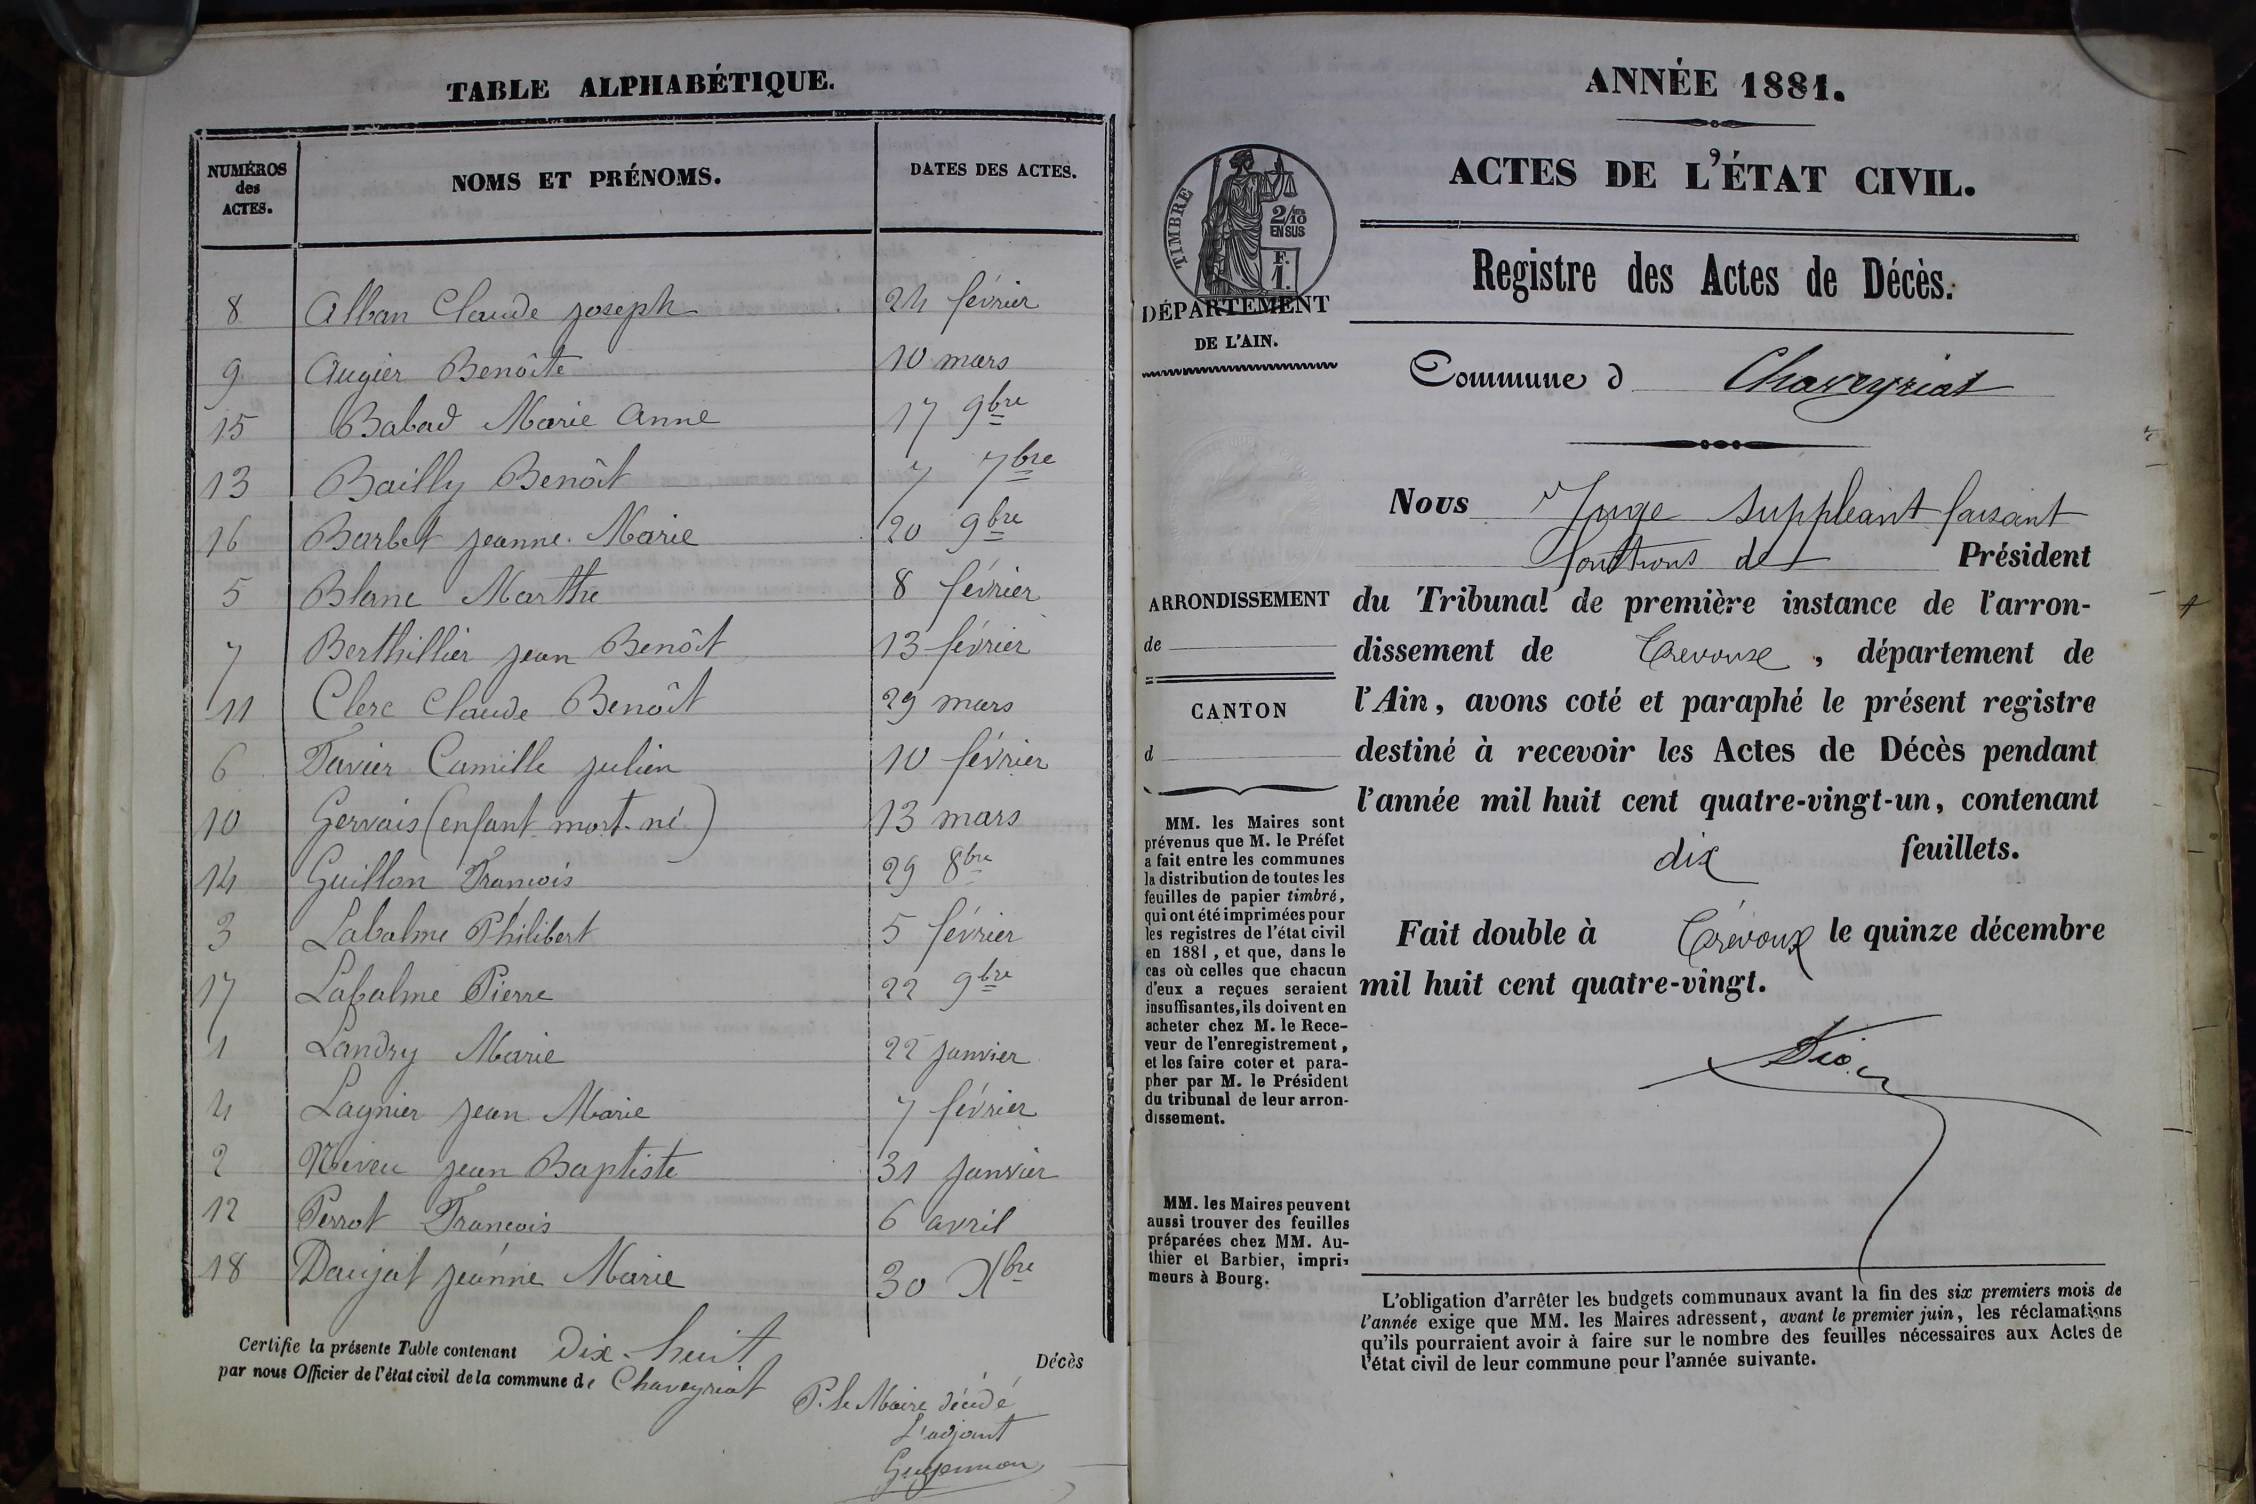 TABLE ALPHABÉTIQUE.
NUMÉROS des ACTES. NOMS ET PRÉNOMS. DATES DES ACTES.
8 Alban Claude Joseph 24 février
9 Augier Benoîte 10 mars
15 Babad Marie Anne 17 9bre
13 Bailly Benoît 7 7bre
16 Barbet Jeanne Marie 20 9bre
5 Blanc Marthe 8 février
7 Berthillier Jean Benoît 13 février
11 Clerc Claude Benoît 29 mars
6 Favier Camille Julien 10 février
10 Gervais (enfant mort-né) 13 mars
14 Guillon François 29 8bre
3 Labalme Philibert 5 février
17 Labalme Pierre 22 9bre
1 Landry Marie 22 Janvier
4 Lagnier Jean Marie 7 février
2 Neveu Jean Baptiste 31 Janvier
12 Perrot François 6 avril
18 Daujat Jeanne Marie 30 Xbre
Certifie la présente Table contenant Dix-huit Décès
par nous Officier de l'état civil de la commune de Chaveyriat
P. le Maire décédé
L'adjoint
ANNÉE 1881.
ACTES DE L'ÉTAT CIVIL.
Registre des Actes de Décès.
TIMBRE
2/10
EN SUS
F.
1.
DÉPARTEMENT
DE L'AIN.
Commune d Chaveyriat
Nous Juge suppléant faisant
fonctions de Président
du Tribunal de première instance de l'arron-
dissement de Trevoux, département de
l'Ain, avons coté et paraphé le présent registre
destiné à recevoir les Actes de Décès pendant
l'année mil huit cent quatre-vingt-un, contenant
dix feuillets.
Fait double à Trévoux le quinze décembre
mil huit cent quatre-vingt.
ARRONDISSEMENT
de
CANTON
d
MM. les Maires sont
prévenus que M. le Préfet
a fait entre les communes
la distribution de toutes les
feuilles de papier timbré,
qui ont été imprimées pour
les registres de l'état civil
en 1881, et que, dans le
cas où celles que chacun
d'eux a reçues seraient
insuffisantes, ils doivent en
acheter chez M. le Rece-
veur de l'enregistrement,
et les faire coter et para-
pher par M. le Président
du tribunal de leur arron-
dissement.
MM. les Maires peuvent
aussi trouver des feuilles
préparées chez MM. Au-
thier et Barbier, impri-
meurs à Bourg.
L'obligation d'arrêter les budgets communaux avant la fin des six premiers mois de
l'année exige que MM. les Maires adressent, avant le premier juin, les réclamations
qu'ils pourraient avoir à faire sur le nombre des feuilles nécessaires aux Actes de
l'état civil de leur commune pour l'année suivante.